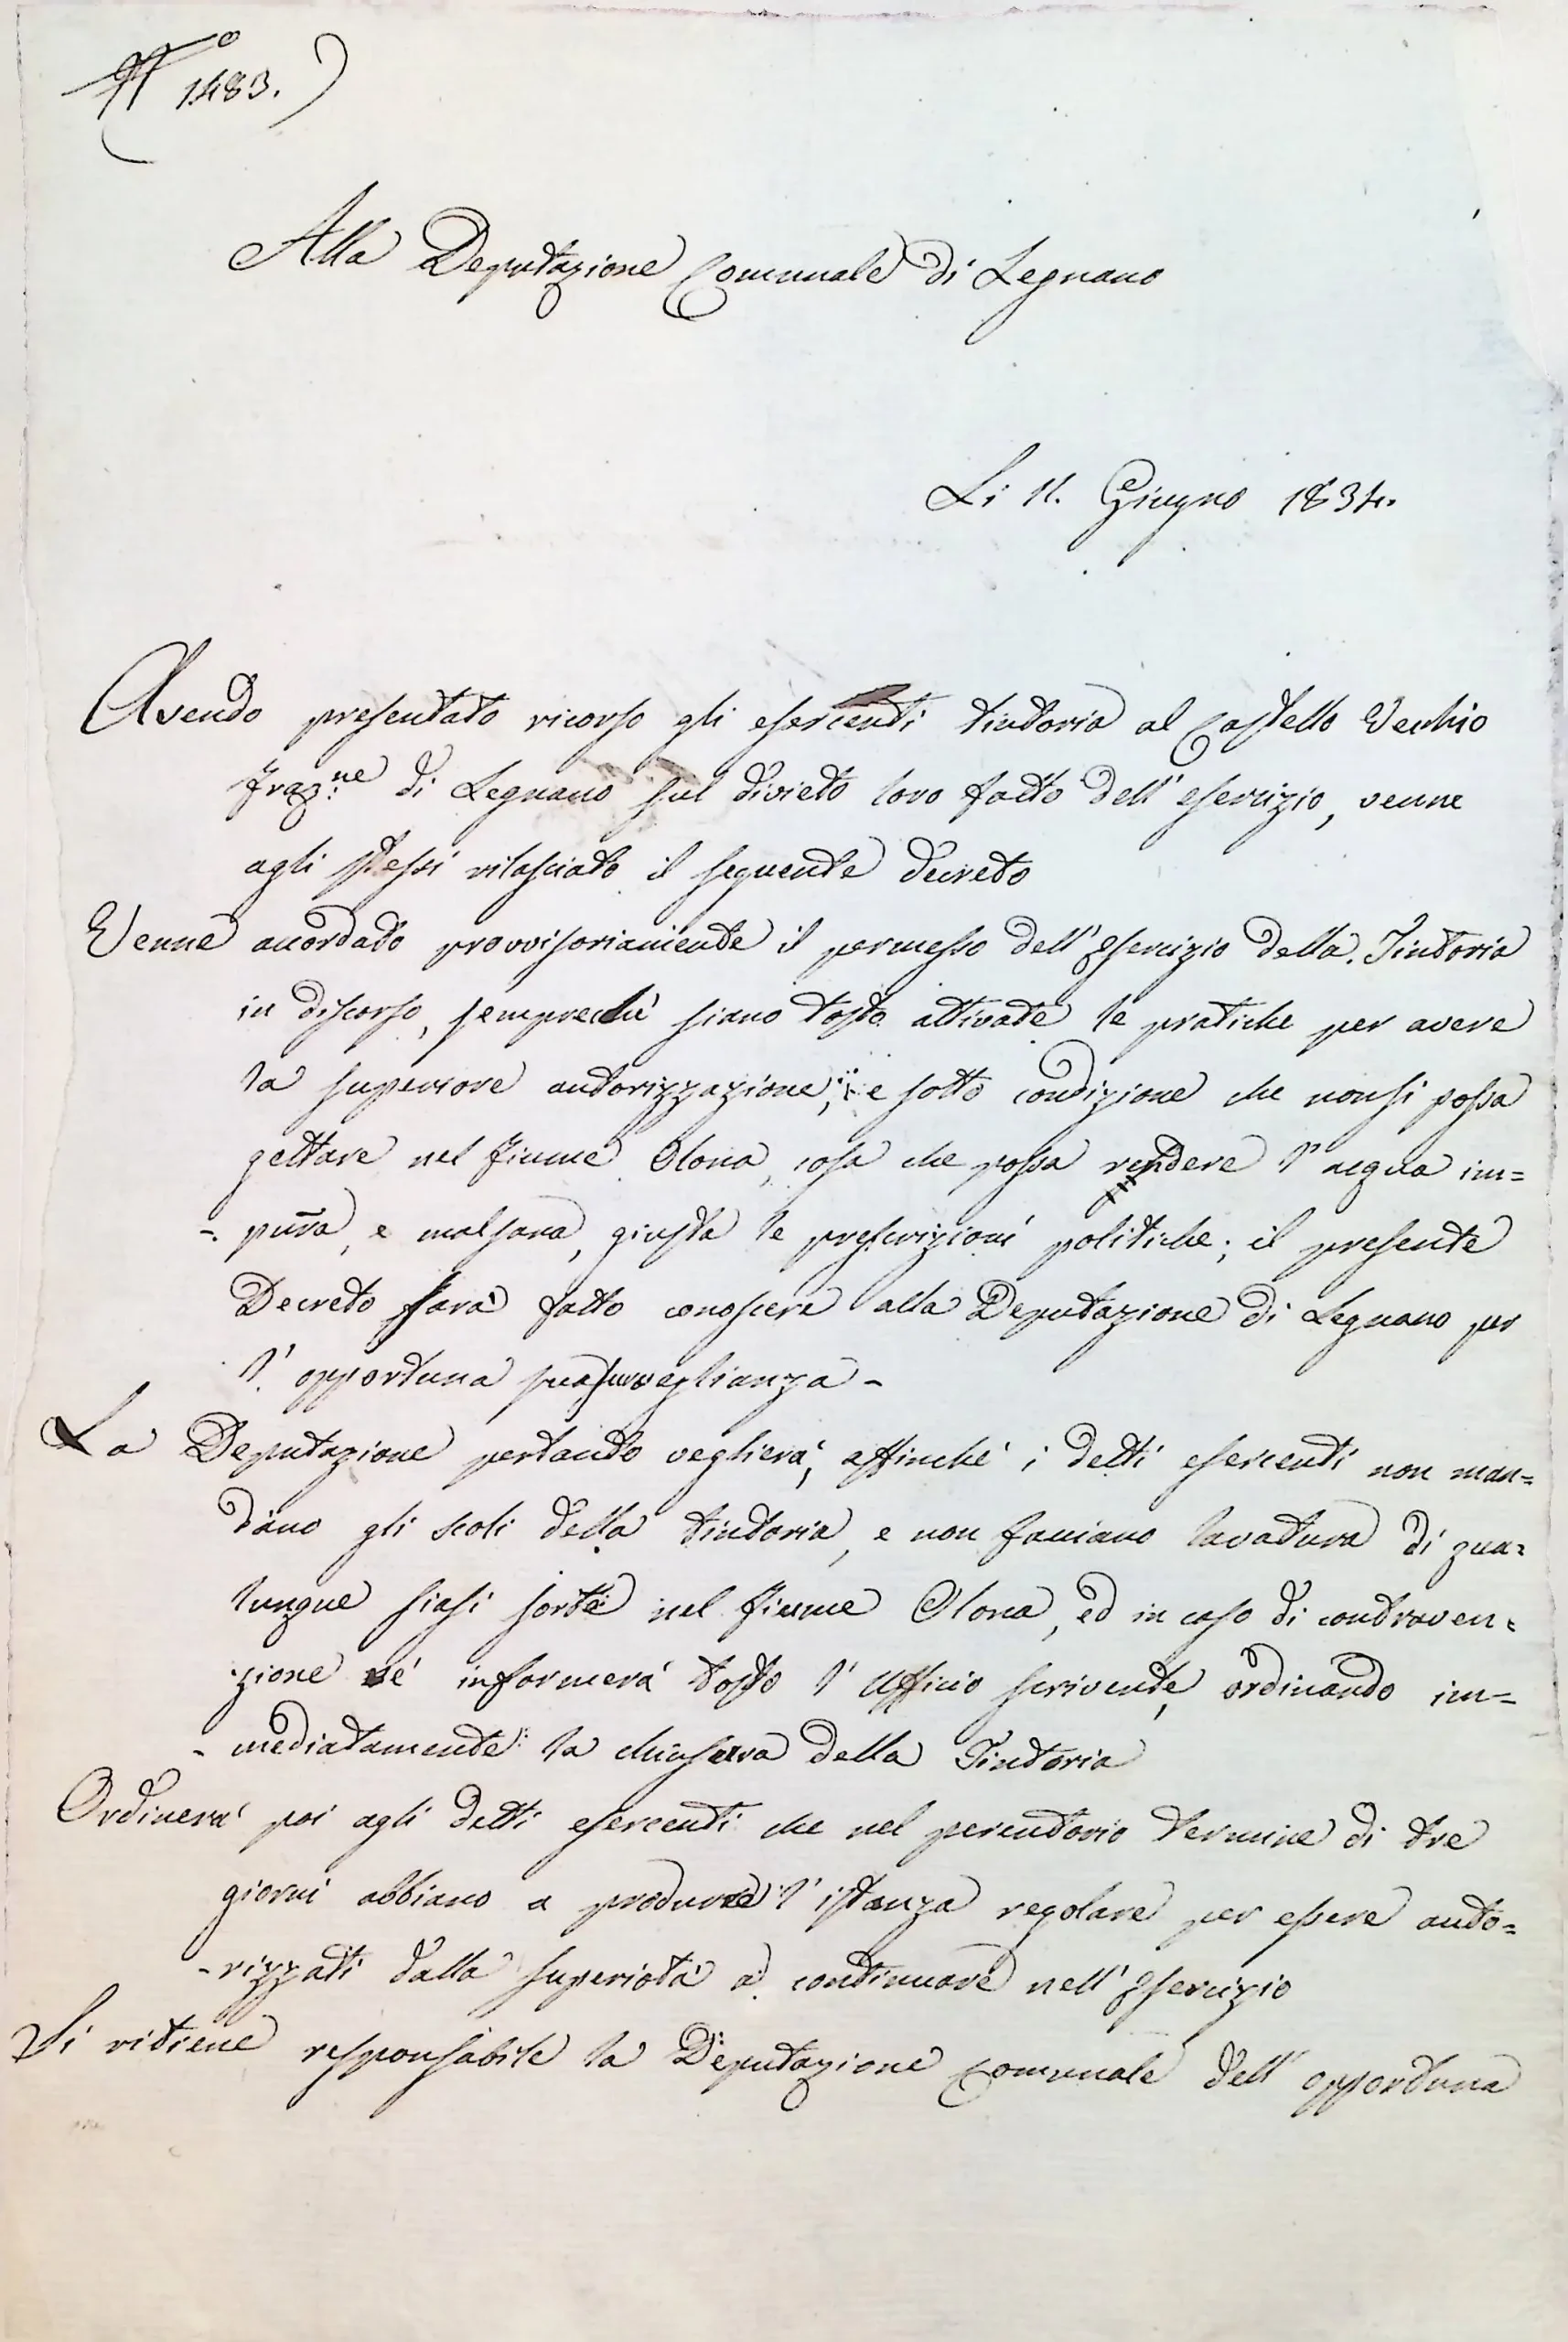 N.º 1483.
Alla Deputazione Comunale di Legnano
Li 11. Giugno 1834.
Avendo presentato ricorso gli esercenti tintoria al Castello Vecchio
fraz.ne di Legnano sul divieto loro fatto dell'esercizio, venne
agli stessi rilasciato il seguente decreto
Venne accordato provvisoriamente il permesso dell'Esercizio della Tintoria
in discorso, sempreché siano tosto attivate le pratiche per avere
la superiore autorizzazione; e sotto condizione che non si possa
gettare nel fiume Olona, cosa che possa rendere l'acqua im=
-pura, e malsana, giusta le prescrizioni politiche; il presente
Decreto sarà fatto conoscere alla Deputazione di Legnano per
l'opportuna sua sorveglianza -
La Deputazione pertanto veglierà, affinché i detti esercenti non man=
dino gli scoli della tintoria, e non facciano lavatura di qua=
lunque siasi sorte nel fiume Olona, ed in caso di contraven=
zione ne informerà tosto l'Ufficio scrivente, ordinando im=
-mediatamente la chiusura della Tintoria
Ordinerà poi agli detti esercenti che nel perentorio termine di tre
giorni abbiano a produrre l'istanza regolare per essere auto=
-rizzati dalla superiotà a continuare nell'Esercizio
Si ritiene responsabile la Deputazione Comunale dell'opportuna